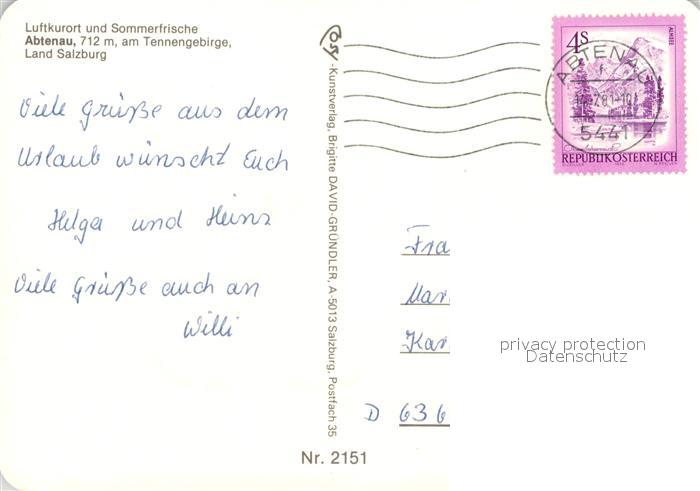 Luftkurort und Sommerfrische
Abtenau, 712 m, am Tennengebirge,
Land Salzburg
Viele Grüße aus dem
Urlaub wünscht Euch
Helga und Heinz
Viele Grüße auch an
Willi
Cosy-Kunstverlag, Brigitte DAVID-GRÜNDLER, A-5013 Salzburg, Postfach 35
Nr. 2151
4S
ALMSEE
REPUBLIK ÖSTERREICH
ABTENAU
5441
Fra
Mar
Kar
D 636
privacy protection
Datenschutz